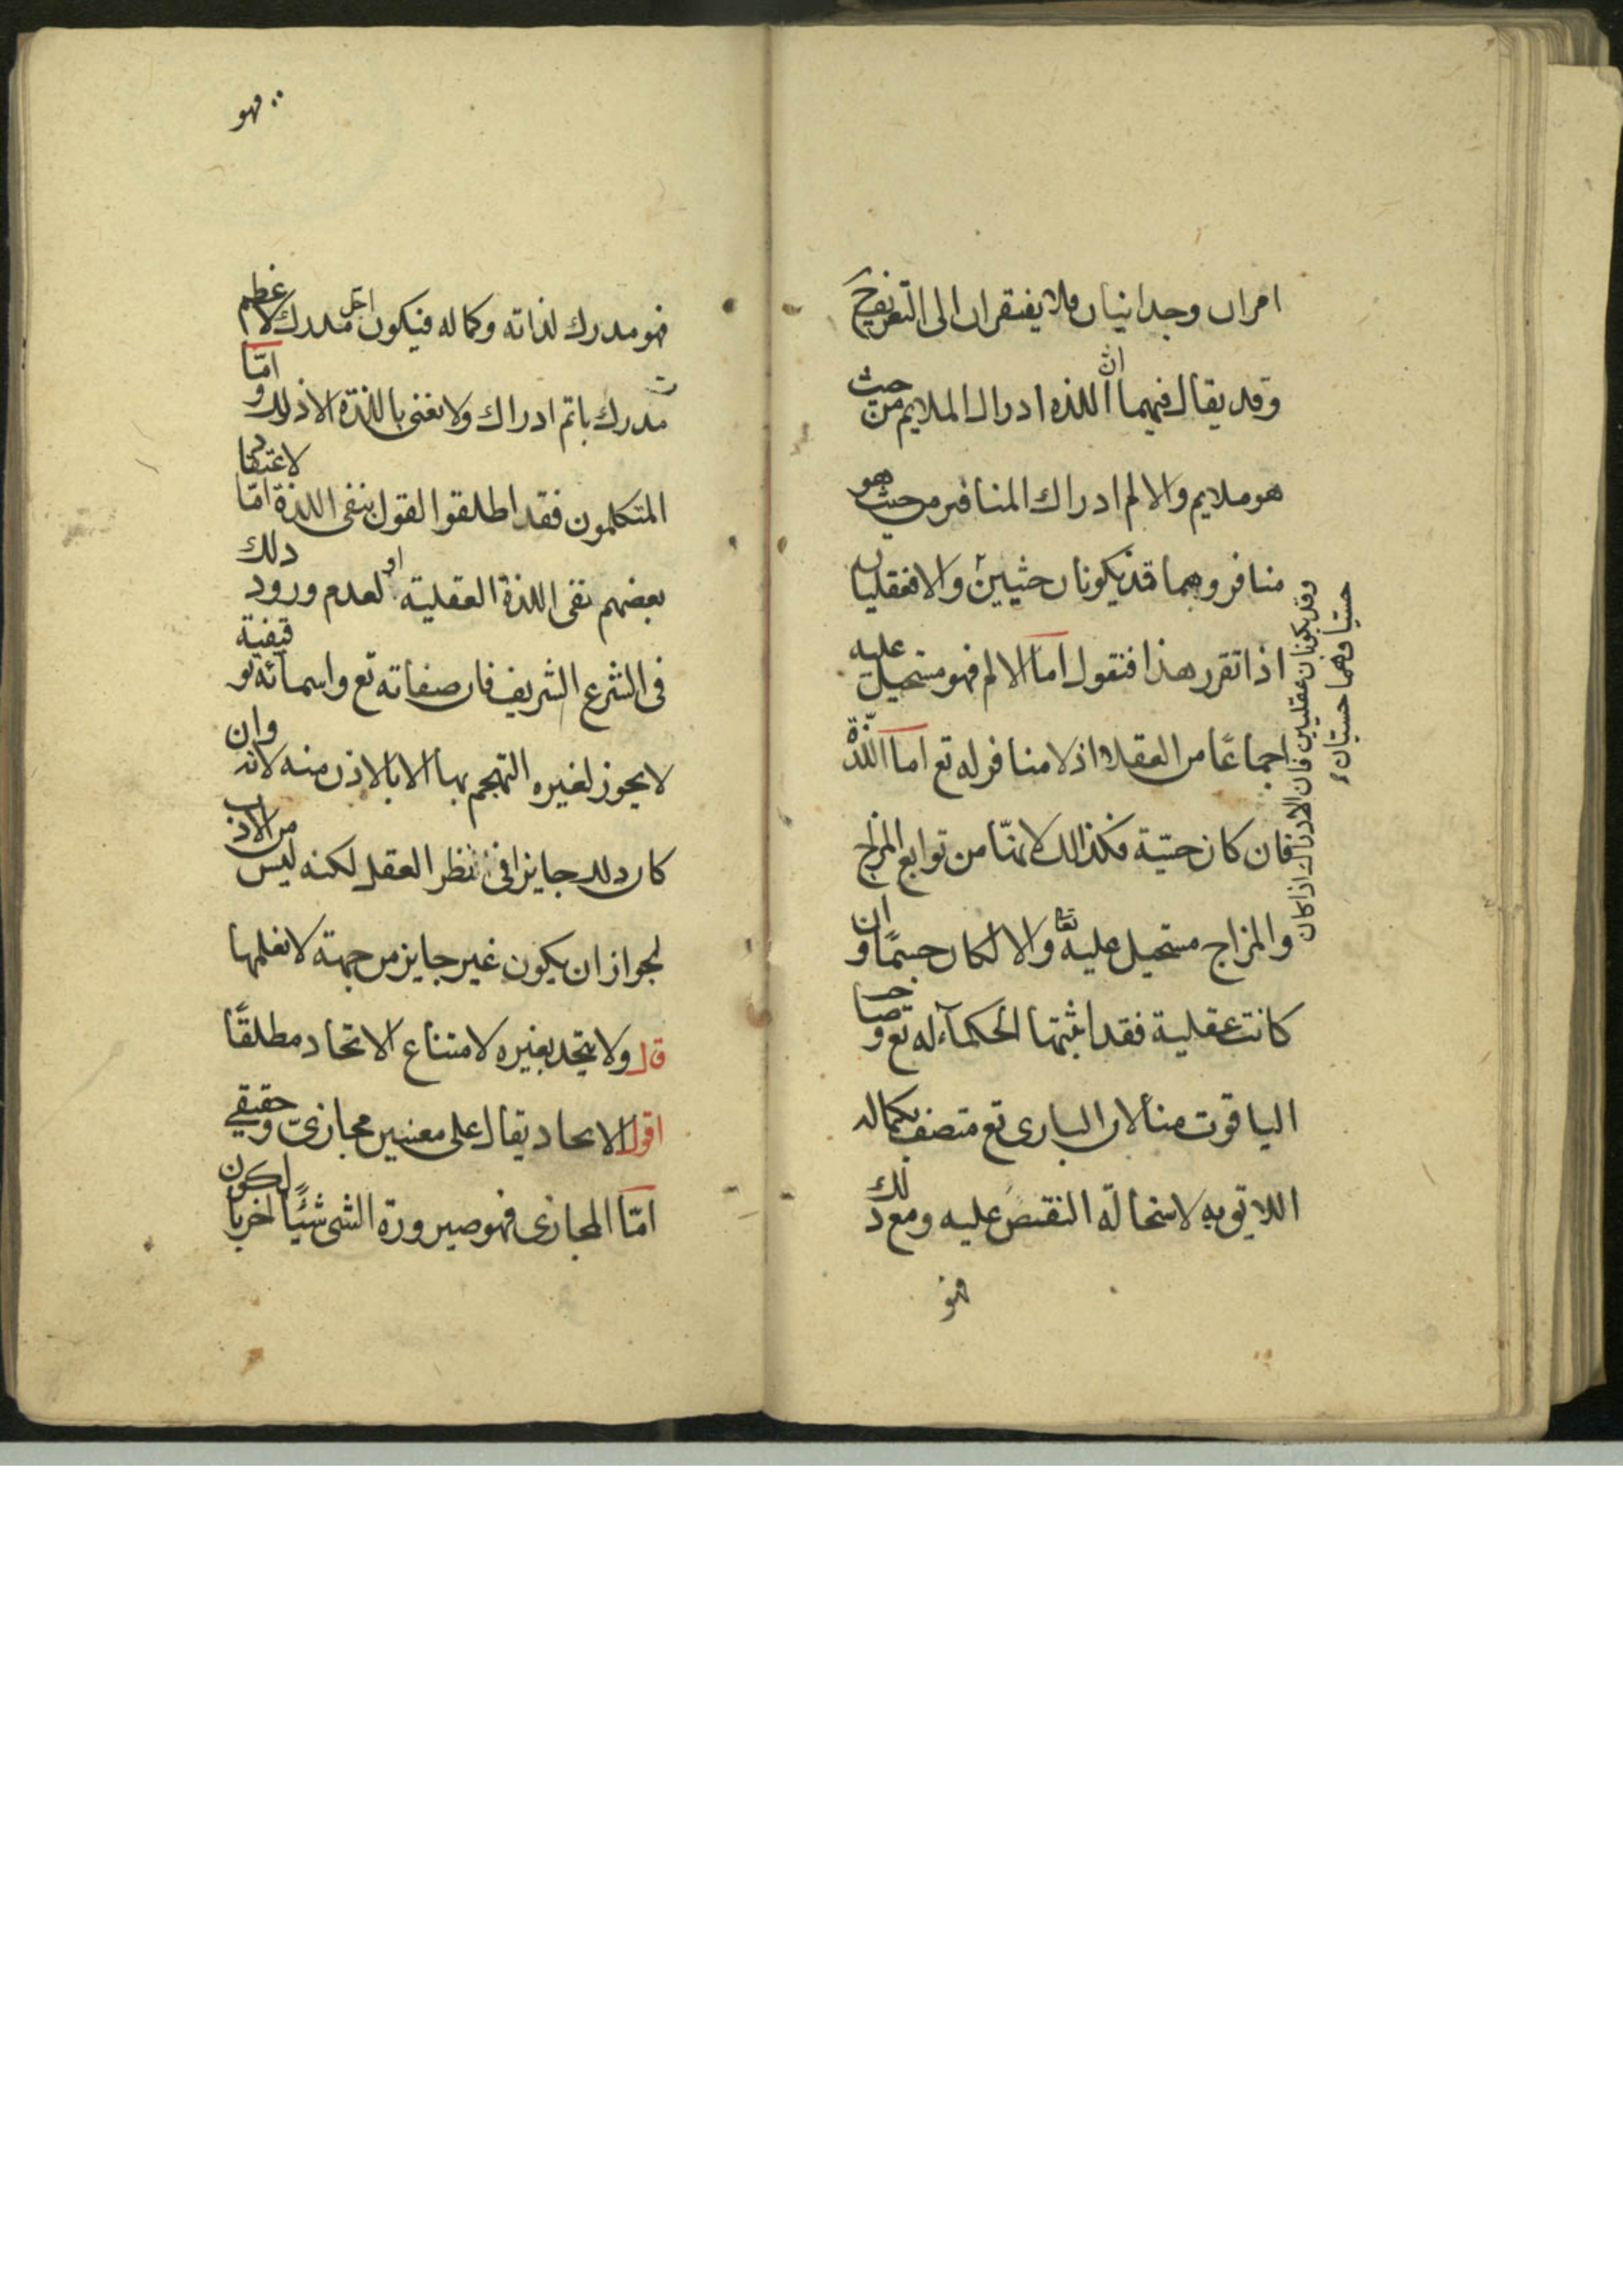 امران وجدانيان فلا يفتقران الى التعريف ح
وقد يقال فيهما ان اللذه ادراك الملايم من حيث
هو ملايم والالم ادراك المنافر من حيث هو
منافر وهما قد يكونان حسيين والا فعقليان
اذا تقرر هذا فنقول اما الالم فهو مستحيل عليه
اجماعًا من العقلا اذ لا منافر له تع اما اللذة
فان كان حسّية فكذالك لانهّا من توابع المزاج
والمزاج مستحيل عليه تعا والا لكان جسمًا وان
كانت عقلية فقد اثبتها الحكمآء له تع وصاحب
الياقوت منا لان البارى تع متصف بكماله
اللايق به لاستحالة النقص عليه ومع ذلك
فهو
وقد يكونان عقليين فان الادراك اذا كان
حسيا فهما حسيتان
فهو
فهو مدرك لذاته وكماله فيكون اجل مدرك لاعظم
مدرك باتم ادراك ولا نعنى باللذة الا ذلك و امّا
المتكلمون فقد اطلقوا القول بنفى اللذة امّا لاعتقاد
بعضهم نفى اللذة العقلية او لعدم ورود ذلك
فى الشرع الشريف فان صفاته تع واسمائه توقيفية
لا يجوز لغيره التهجم بها الا بالاذن منه لانه وان
كان ذلك جايزا فى نظر العقل لكنه ليس من الادب
لجواز ان يكون غير جايز من جهة لا نعلمها
قال ولا يتحد بغيره لامتناع الاتحاد مطلقًا
اقول الاتحاد يقال على معنيين مجازىّ وحقيقي
امّا المجازى فهو صيرورة الشى شيئًا اخر بالكون